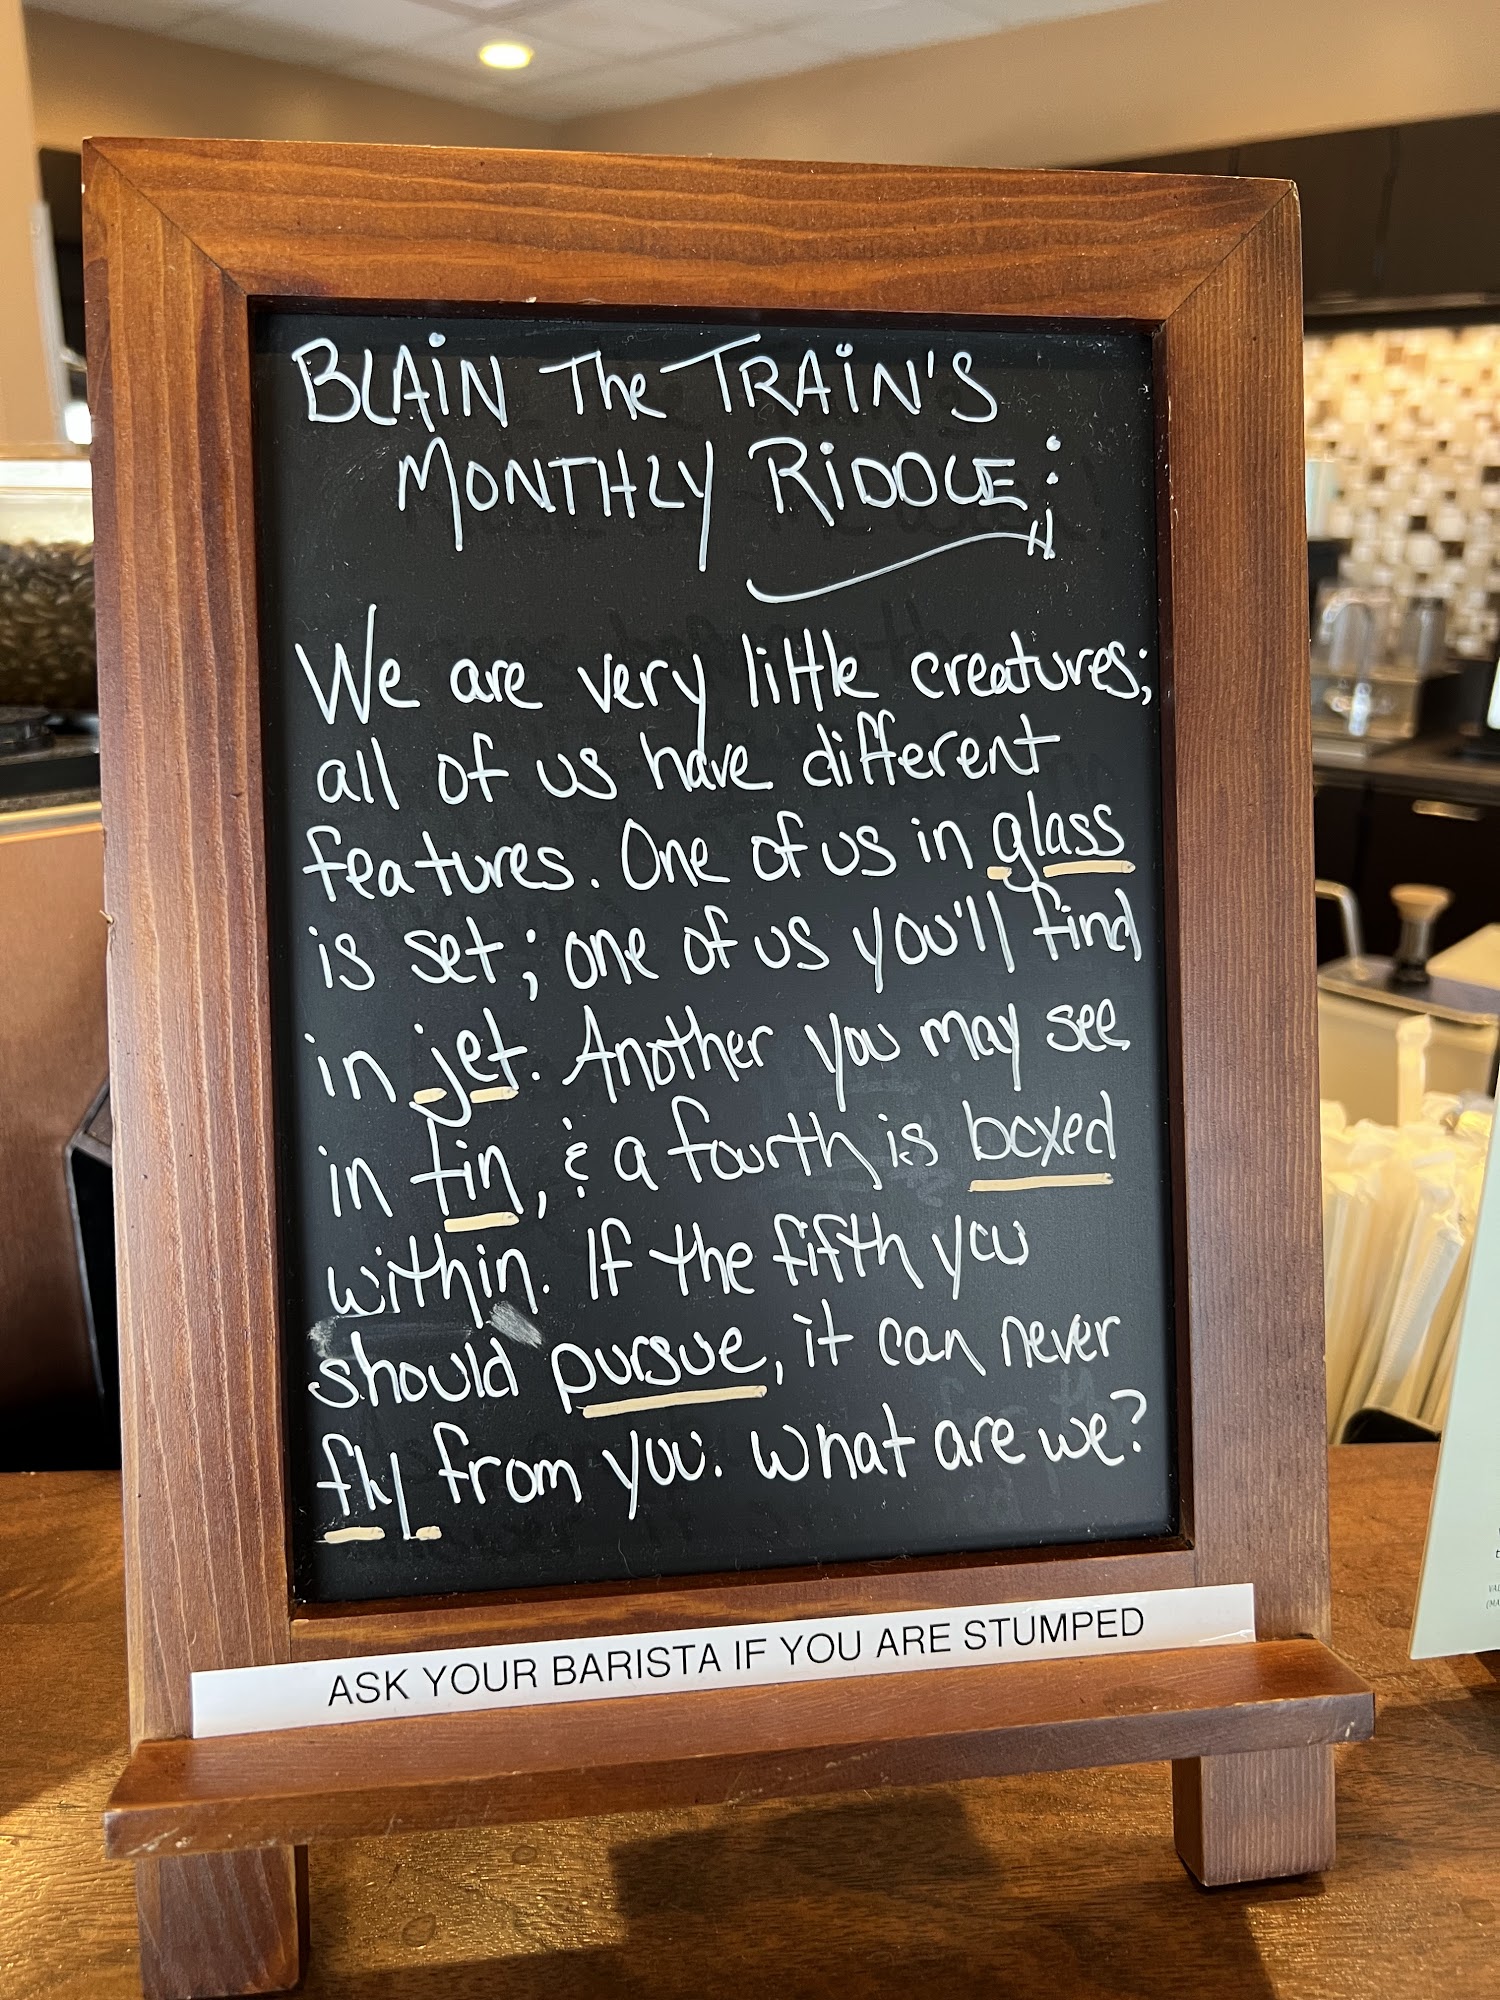 BLAiN The TRAiN'S
MONTHLY RiDDLE:
We are very little creatures;
all of us have different
features. One of us in glass
is set; one of us you'll find
in jet. Another you may see
in tin, & a fourth is boxed
within. If the fifth you
should pursue, it can never
fly from you. What are we?
ASK YOUR BARISTA IF YOU ARE STUMPED